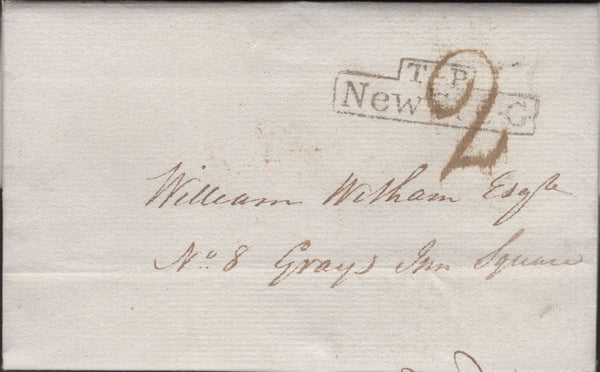 T.P
New St
2
William Witham Esqre
No 8 Grays Inn Square